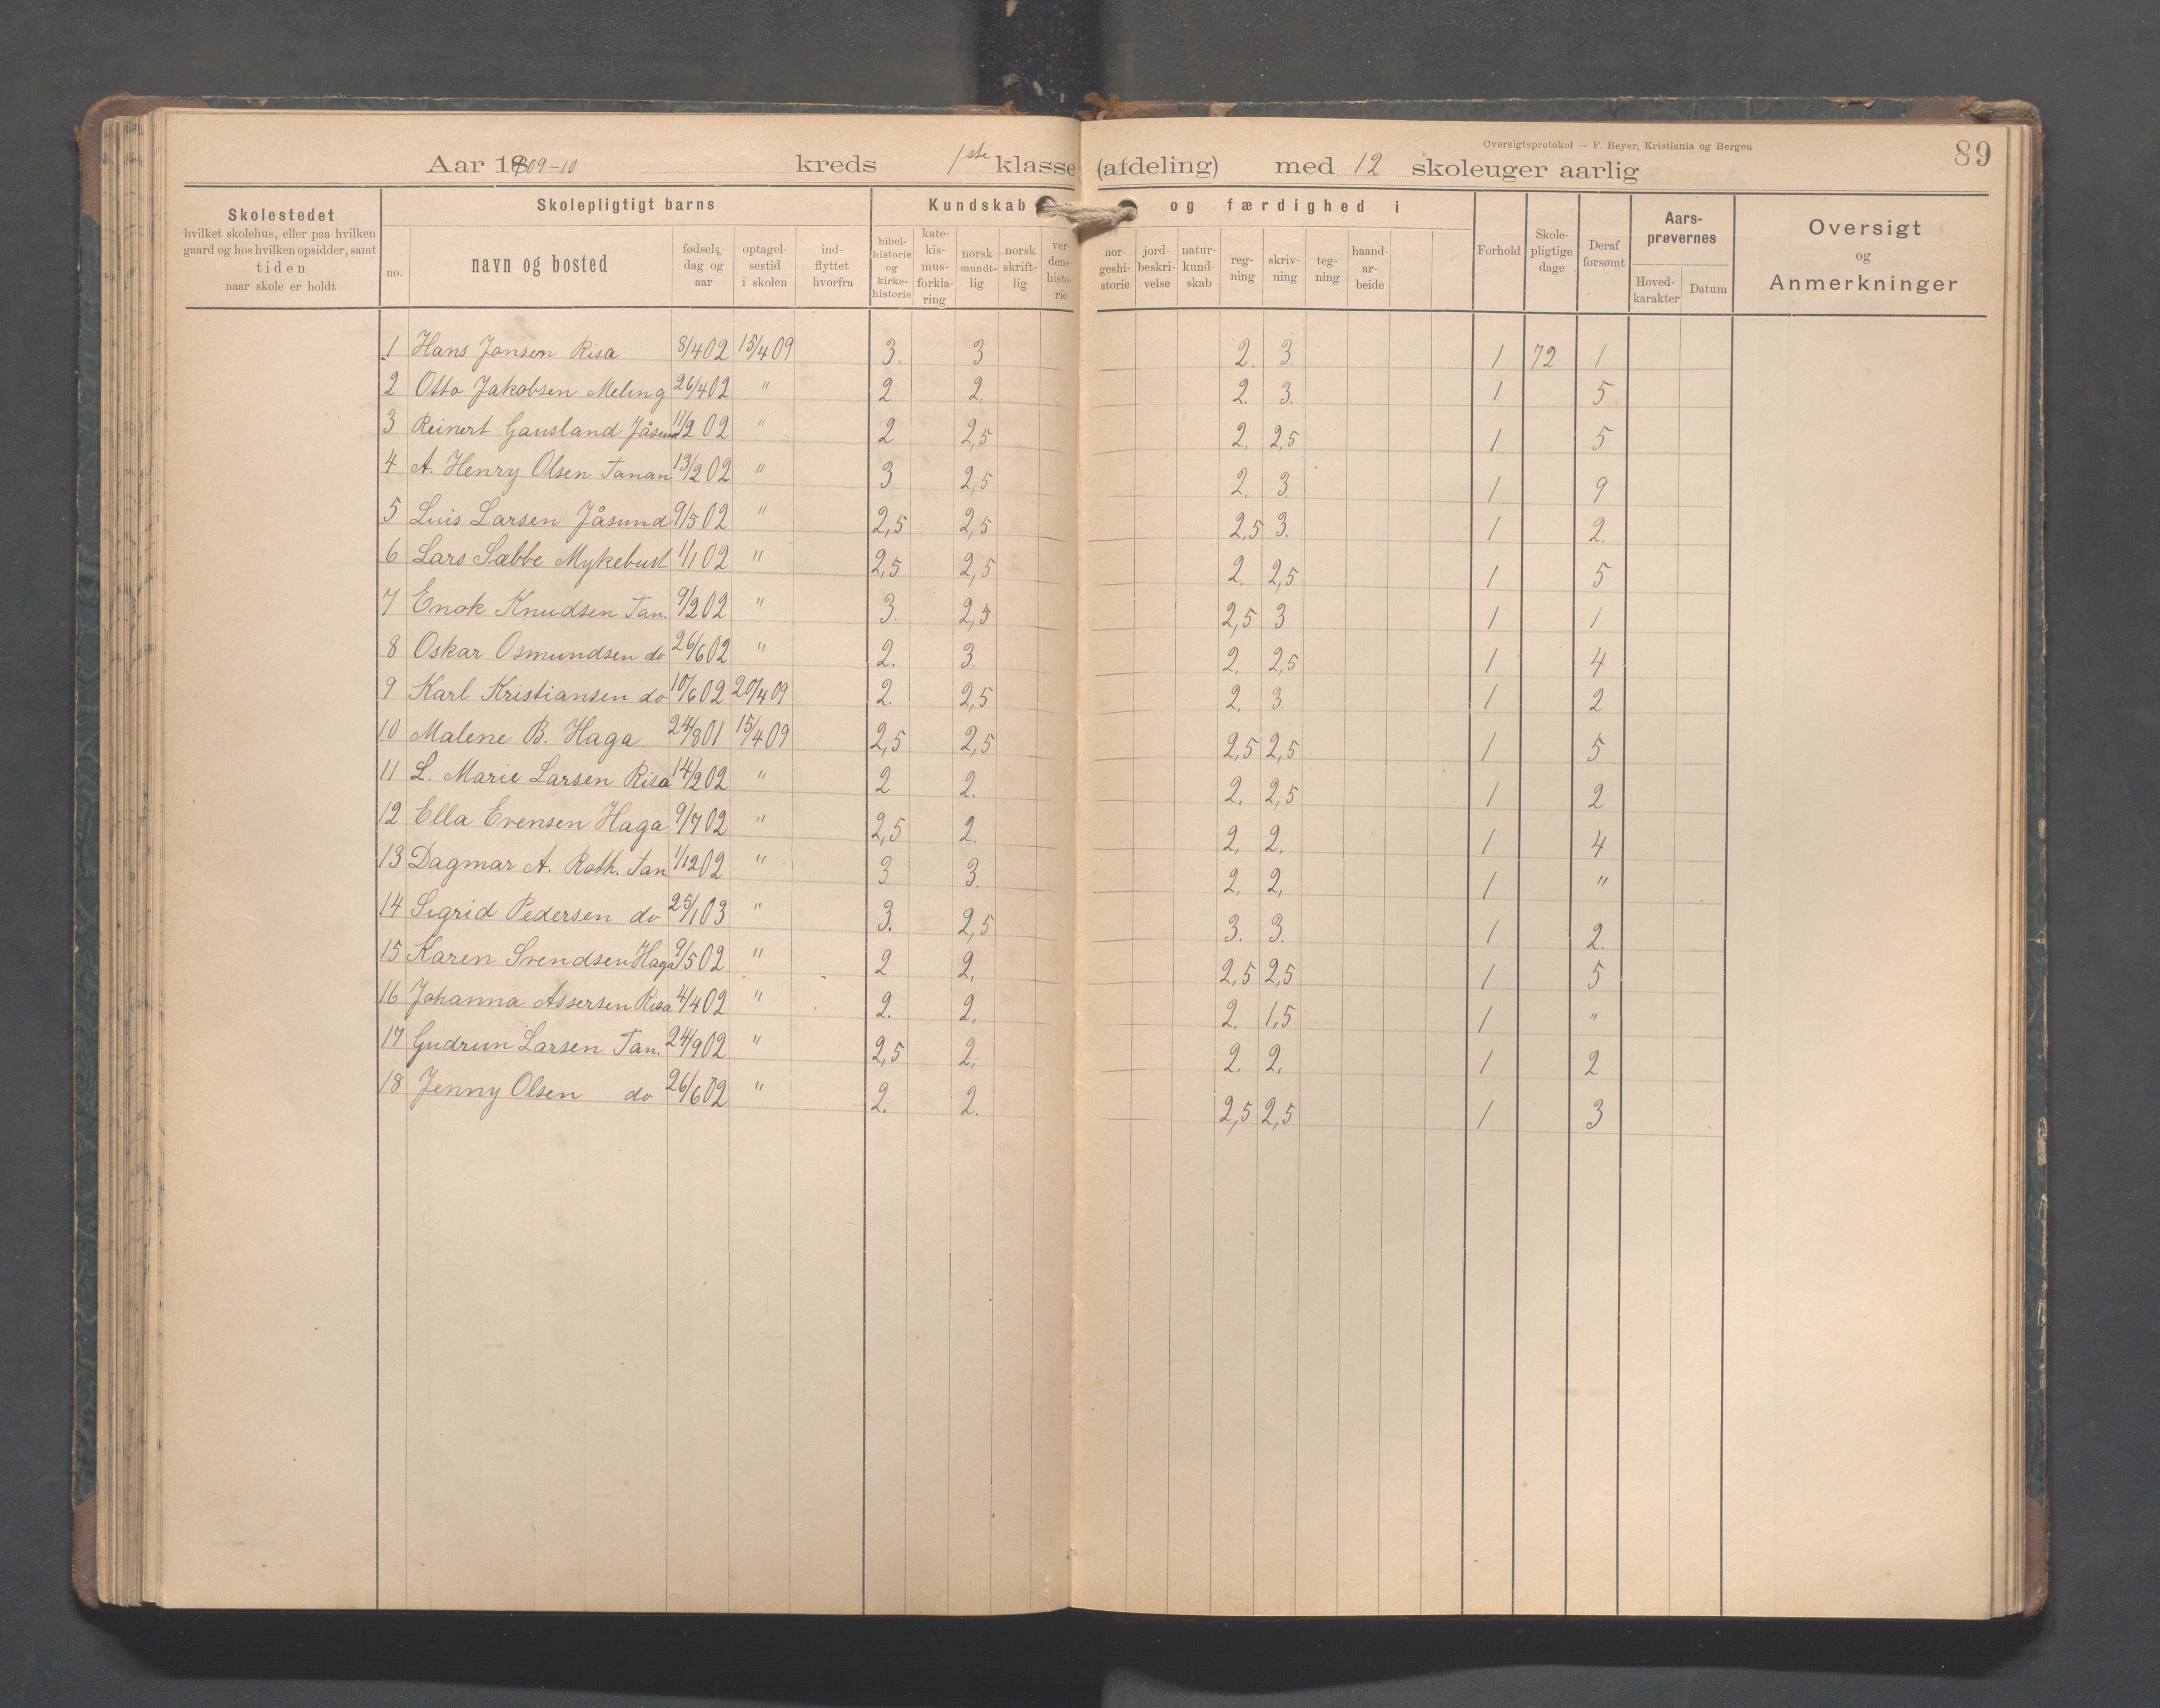 Oversigtsprotokol — F. Beyer, Kristiania og Bergen
89
Aar 1909-10 kreds 1ste klasse (afdeling) med 12 skoleuger aarlig
Skolestedet
hvilket skolehus, eller paa hvilken
gaard og hos hvilken opsidder, samt
tiden
naar skole er holdt
Skolepligtigt barns
no.
navn og bosted
fødsels-
dag og
aar
optagel-
sestid
i skolen
ind-
flyttet
hvorfra
Kundskab og færdighed i
bibel-
historie
og
kirke-
historie
kate-
kis-
mus-
forkla-
ring
norsk
mundt-
lig
norsk
skrift-
lig
ver-
dens-
histo-
rie
nor-
geshi-
storie
jord-
beskri-
velse
natur-
kund-
skab
reg-
ning
skriv-
ning
teg-
ning
haand-
ar-
beide
Forhold
Skole-
pligtige
dage
Deraf
forsømt
Aars-
prøvernes
Hoved-
karakter
Datum
Oversigt
og
Anmerkninger
1 Hans Jonsen Risa 8/4 02 15/4 09 3. 3 2. 3. 1 72 1
2 Otto Jakobsen Meling 26/4 02 " 2 2. 2. 3. 1 5
3 Reinert Gausland Jåsund 11/2 02 " 2 2,5 2. 2,5 1 5
4 A. Henry Olsen Tanan 13/2 02 " 3 2,5 2. 3. 1 9
5 Luis Larsen Jåsund 9/5 02 " 2,5 2,5 2,5 3. 1 2.
6 Lars Sæbbe Mykebust 1/1 02 " 2,5 2,5 2. 2,5 1 5
7 Enok Knudsen Tan. 9/2 02 " 3. 2,5 2,5 3 1 1
8 Oskar Osmundsen do 26/6 02 " 2. 3. 2. 2,5 1 4
9 Karl Kristiansen do 10/6 02 20/4 09 2. 2,5 2. 3. 1 2
10 Malene B. Haga 24/8 01 15/4 09 2,5 2,5 2,5 2,5 1 5
11 L. Marie Larsen Risa 14/2 02 " 2 2. 2. 2,5 1 2
12 Ella Evensen Haga 9/7 02 " 2,5 2. 2. 2. 1 4
13 Dagmar A. Roth. Tan 1/12 02 " 3 3. 2. 2. 1 "
14 Sigrid Pedersen do 25/1 03 " 3. 2,5 3. 3. 1 2.
15 Karen Svendsen Haga 9/5 02 " 2 2. 2,5 2,5 1 5
16 Johanna Assersen Risa 4/4 02 " 2. 2. 2. 1,5 1 "
17 Gudrun Larsen Tan. 24/9 02 " 2,5 2. 2. 2. 1 2
18 Jenny Olsen do 26/6 02 " 2. 2. 2,5 2,5 1 3